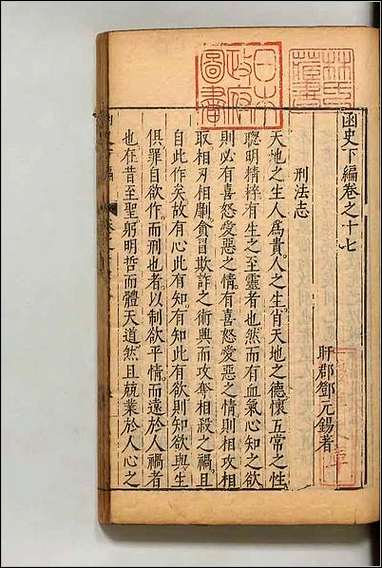 函史下編卷之十七
盱郡鄧元錫著
刑法志
天地之生人爲貴人之生肖天地之德懷五常之性
聰明精粹有生之至靈者也然而有血氣心知之欲
則必有喜怒愛惡之情有喜怒愛惡之情則相攻相
取相刃相劘貪冒欺詐之術興而攻奪相殺之禍且
自此作矣故有心此有知有知此有欲則知欲與生
俱罪自欲作而刑也者以制欲平情而遠於人禍者
也在昔至聖躬明哲而體天道然且兢業於人心之
日本
政府
圖書
林氏
藏書